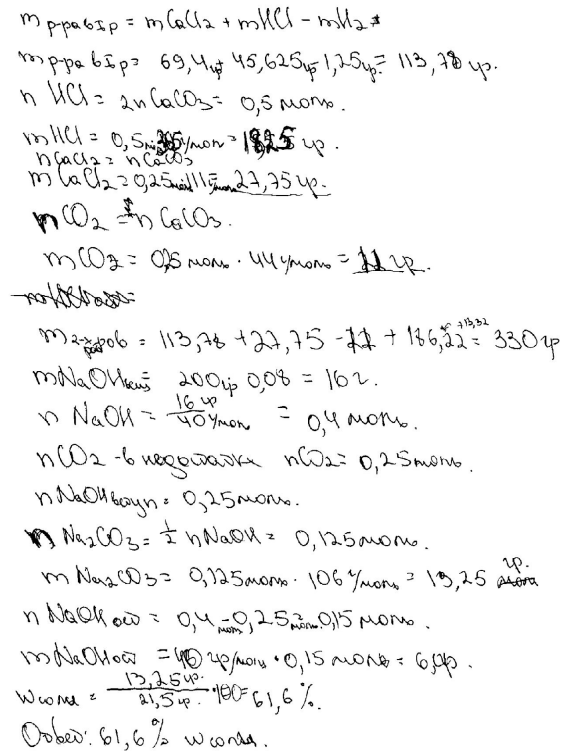 m р-ра в I р = mCaCl2 + mHCl - mH2
m р-ра в I р = 69,4 гр + 45,625 гр - 1,25 гр = 113,78 гр.
n HCl = 2nCaCO3 = 0,5 моль.
mHCl = 0,5 моль г/моль = 18,25 гр.
nCaCl2 = nCaCO3
mCaCl2 = 0,25 моль 111 г/моль = 27,75 гр.
nCO2 = nCaCO3.
mCO2 = 0,25 моль · 44 г/моль = 11 гр.
m 2-х = 113,78 + 27,75 - 11 + 186,22 + 13,32 = 330 гр
mNaOH = 200 гр 0,08 = 16 г.
n NaOH = 16 гр / 40 г/моль = 0,4 моль.
nCO2 - в недостатке nCO2 = 0,25 моль.
nNaOH вступ = 0,25 моль.
n Na2CO3 = 1/2 nNaOH = 0,125 моль.
m Na2CO3 = 0,125 моль · 106 г/моль = 13,25 гр.
n NaOH ост = 0,4 моль - 0,25 моль = 0,15 моль.
mNaOH ост = 40 гр/моль · 0,15 моль = 6,0 гр.
w соли = 13,25 гр. / 21,5 гр. · 100 = 61,6 %.
Ответ: 61,6 % w соли.